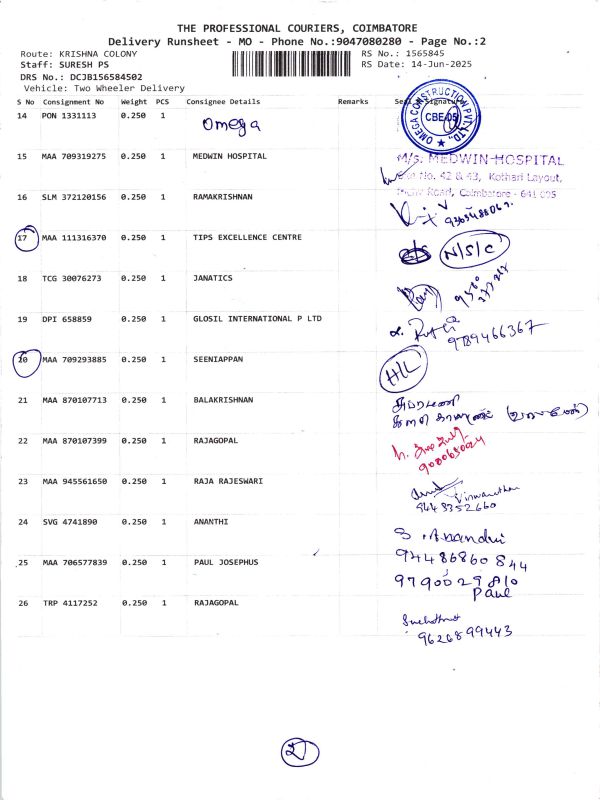 THE PROFESSIONAL COURIERS, COIMBATORE
Delivery Runsheet - MO - Phone No.:9047080280 - Page No.:2
Route: KRISHNA COLONY RS No.: 1565845
Staff: SURESH PS RS Date: 14-Jun-2025
DRS No.: DCJB156584502
Vehicle: Two Wheeler Delivery
S No Consignment No Weight PCS Consignee Details Remarks Seal Signature
14 PON 1331113 0.250 1 Omega OMEGA CONSTRUCTION PVT. LTD. CBE-05
15 MAA 709319275 0.250 1 MEDWIN HOSPITAL M/S. MEDWIN HOSPITAL
No. 42 & 43, Kothari Layout,
Road, Coimbatore - 641 005
16 SLM 372120156 0.250 1 RAMAKRISHNAN
17 MAA 111316370 0.250 1 TIPS EXCELLENCE CENTRE N/S/C
18 TCG 30076273 0.250 1 JANATICS
19 DPI 658859 0.250 1 GLOSIL INTERNATIONAL P LTD
9789466367
20 MAA 709293885 0.250 1 SEENIAPPAN H/L
21 MAA 870107713 0.250 1 BALAKRISHNAN
22 MAA 870107399 0.250 1 RAJAGOPAL
23 MAA 945561650 0.250 1 RAJA RAJESWARI Viswanathan
9443352660
24 SVG 4741890 0.250 1 ANANTHI S. Anandhi
9448686084 4
25 MAA 706577839 0.250 1 PAUL JOSEPHUS
9790029810
Paul
26 TRP 4117252 0.250 1 RAJAGOPAL
9626899443
2